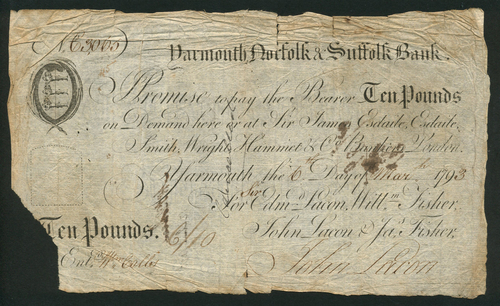 Yarmouth Norfolk & Suffolk Bank.
I Promise to pay the Bearer Ten Pounds
on Demand here or at Sir James Esdaile, Esdaile,
Smith, Wright, Hammet & Co. Bankers London.
Yarmouth the 6th Day of Mar 1793
For Edmd. Lacon, Willm. Fisher,
John Lacon & Jas. Fisher.
Ten Pounds.
Entd.
John Lacon